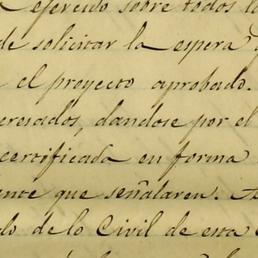 ejercido sobre todos l
de solicitar la espera
el proyecto aprobado.
eresados, dandose por el
certificada en forma
ente que señalaren.
do de lo Civil de esta